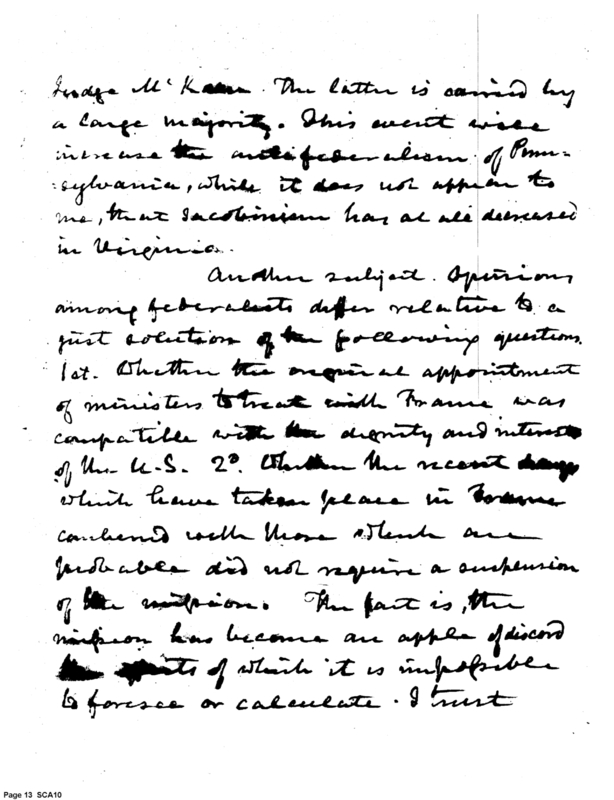 Judge McKean. The latter is carried by
a large majority. This event will
increase the antifederalism of Penn-
-sylvania, while it does not appear to
me, that Jacobinism has at all decreased
in Virginia.
Another subject. Opinions
among federalists differ relative to a
just solution of the following questions.
1st. Whether the original appointment
of ministers to treat with France was
compatible with the dignity and interests
of the U.S. 2d. Whether the recent changes
which have taken place in France
combined with those which are
probable did not require a suspension
of the mission. The fact is, the
mission has become an apple of discord
the effects of which it is impossible
to foresee or calculate. I trust
Page 13 SCA10